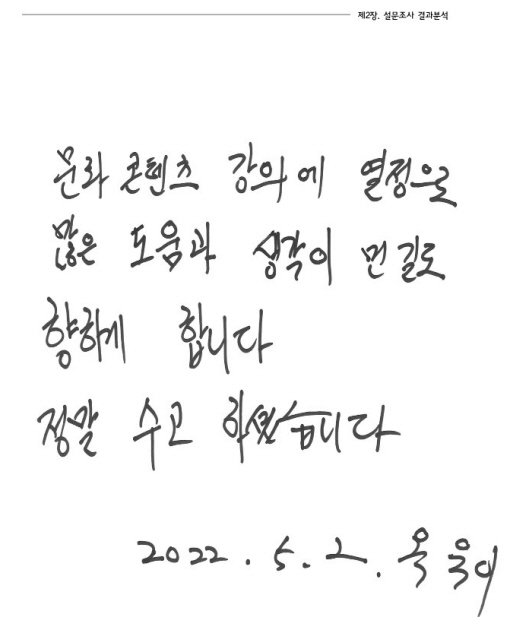 제2장. 설문조사 결과분석
문화 콘텐츠 강의에 열정으로
많은 도움과 생각이 먼 길로
향하게 합니다
정말 수고 하셨습니다
2022. 5. 2. 옥